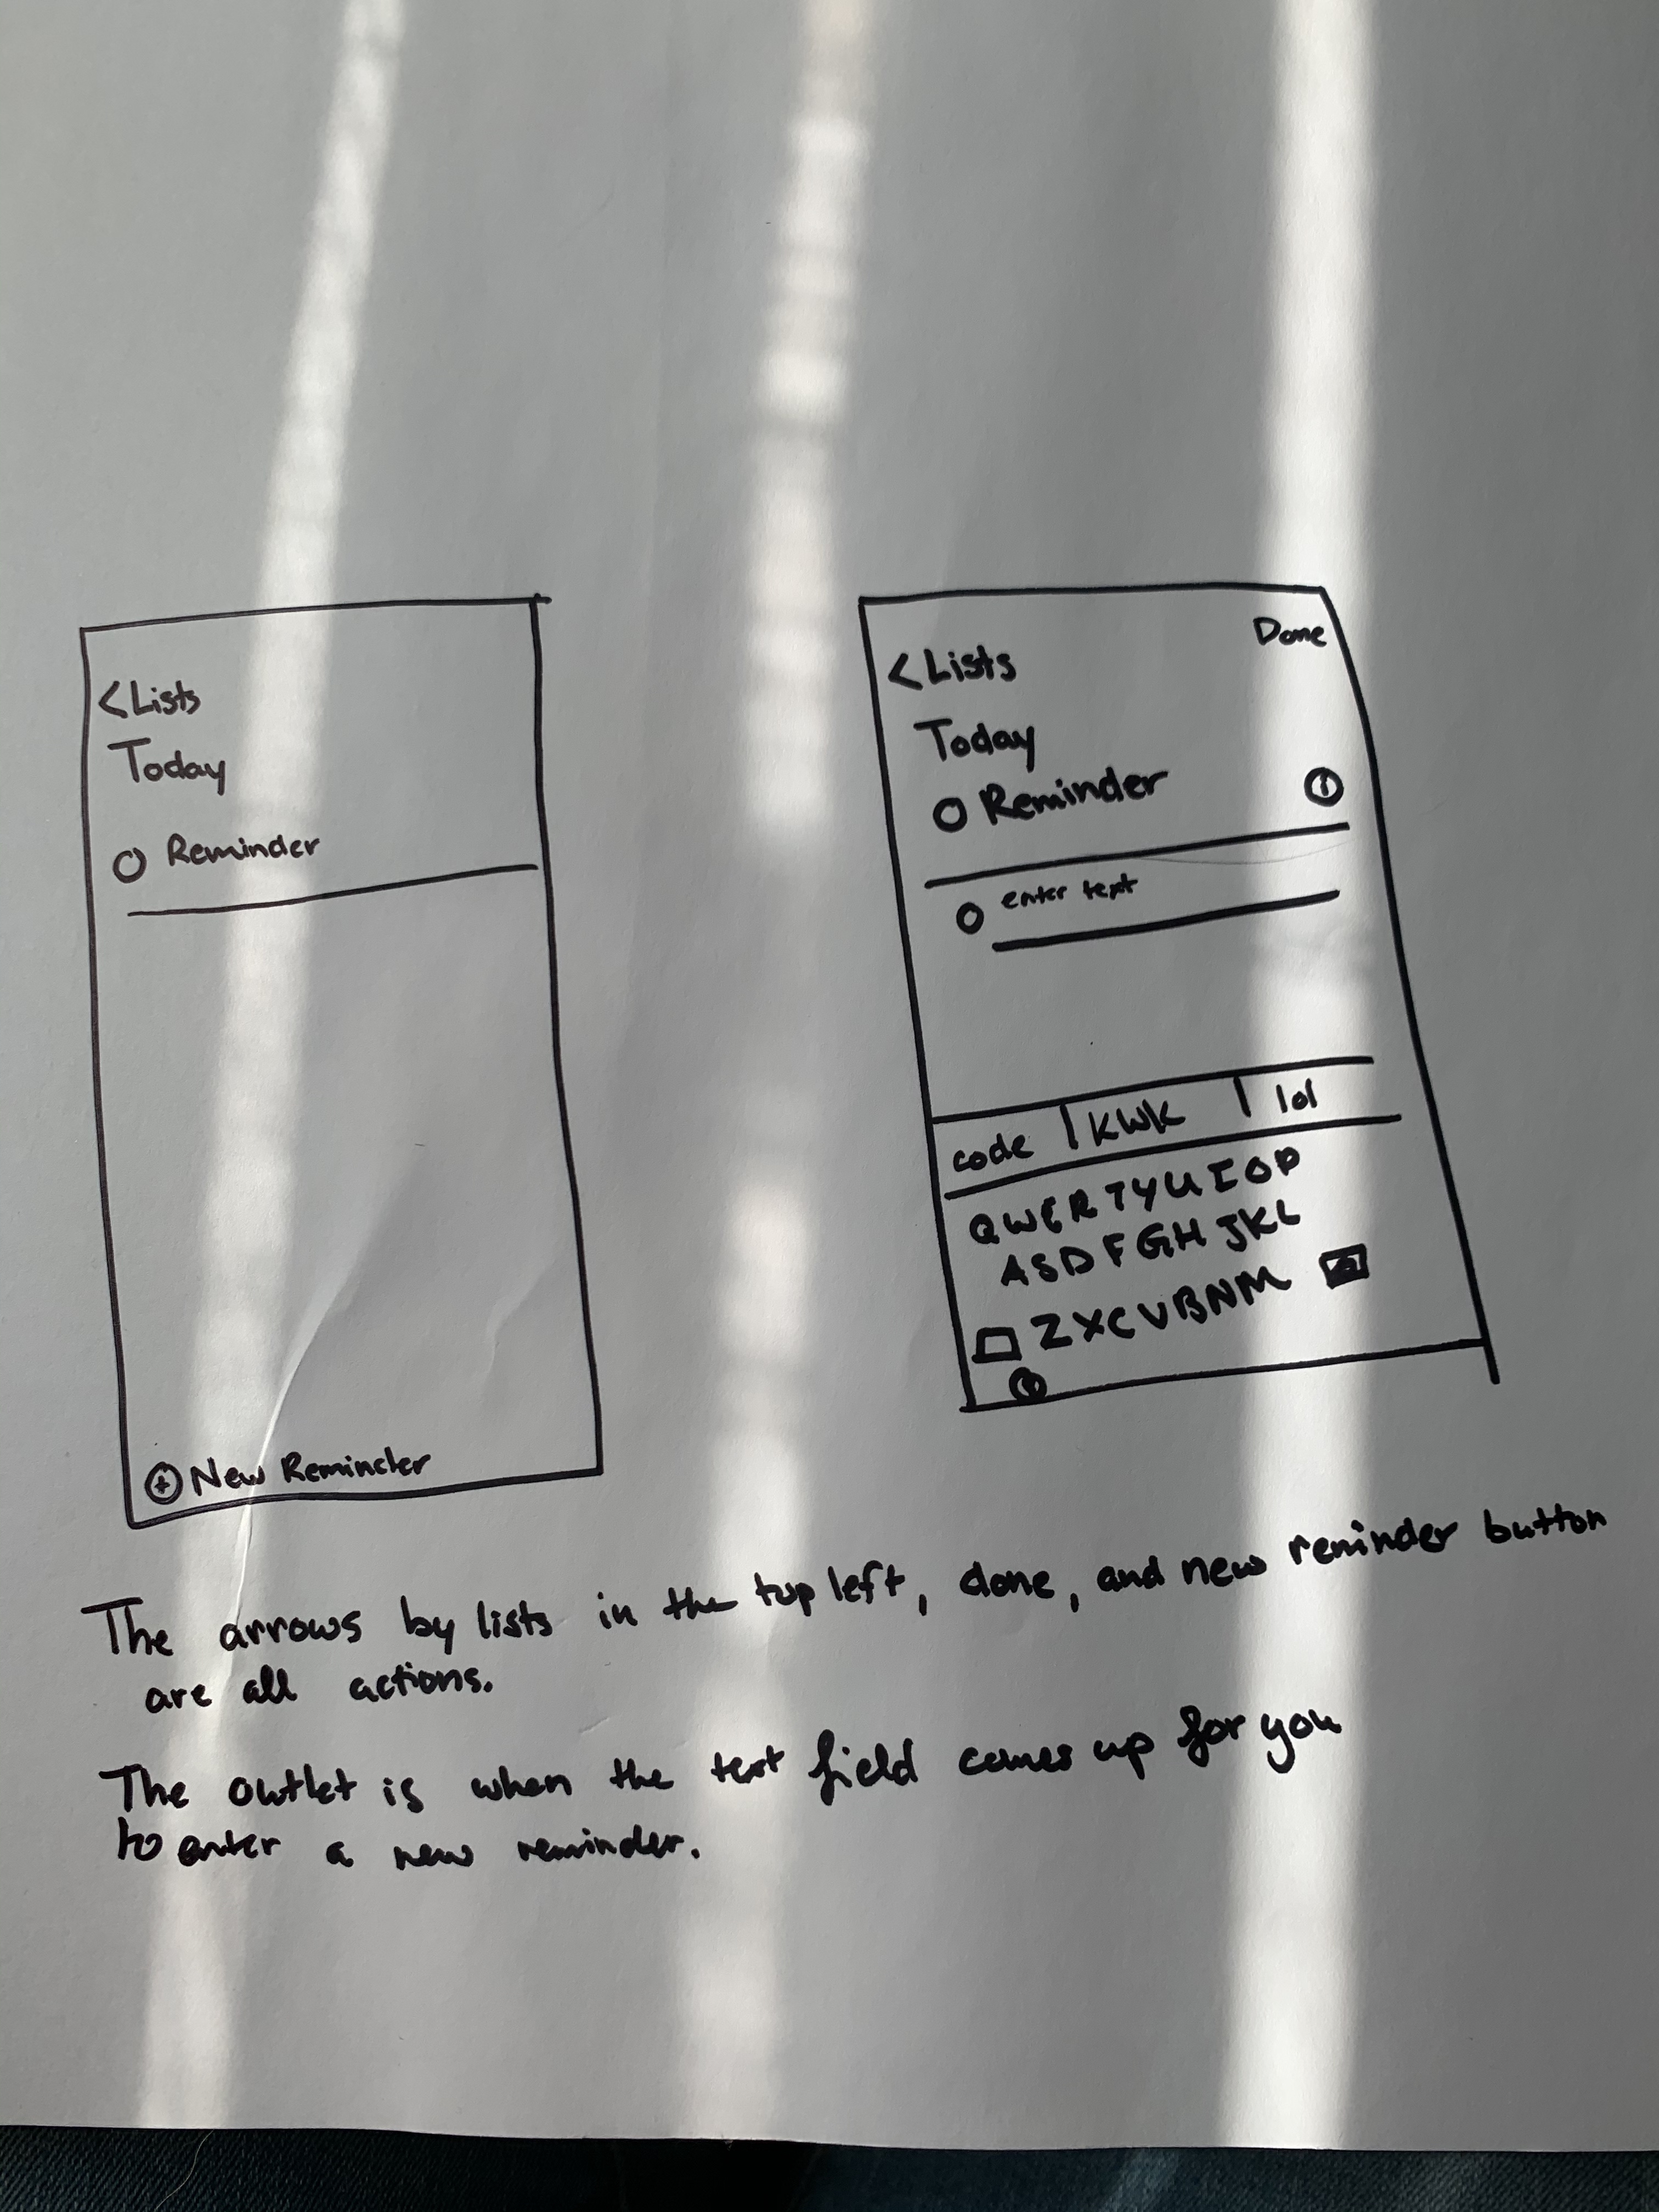 <Lists
Today
Reminder
+ New Reminder
Done
<Lists
Today
Reminder
enter text
code | KWK | lol
QWERTYUIOP
ASDFGHJKL
ZXCVBNM
The arrows by lists in the top left, done, and new reminder button
are all actions.
The outlet is when the text field comes up for you
to enter a new reminder.